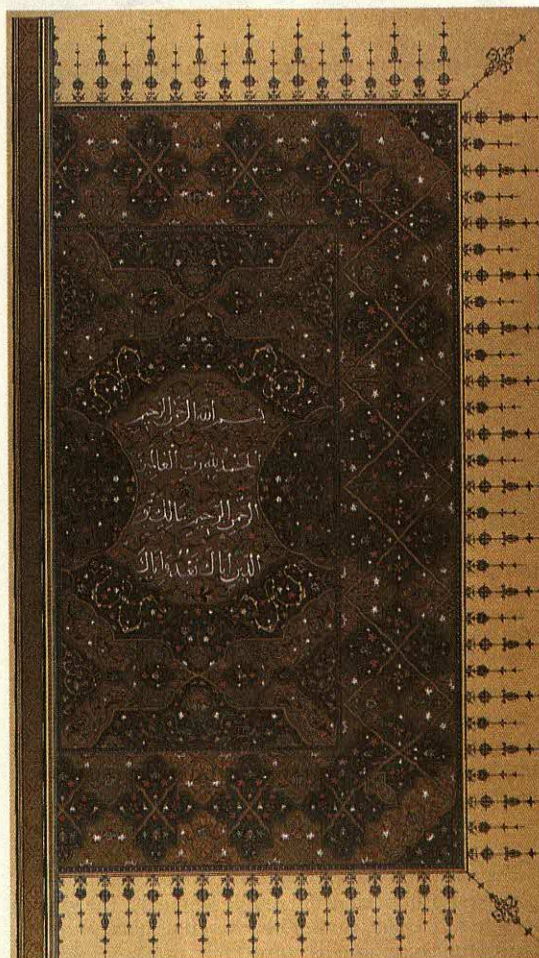 بسم الله الرحمن الرحيم
الحمد لله رب العالمين
الرحمن الرحيم مالك يو
الدين اياك نعبد واياك